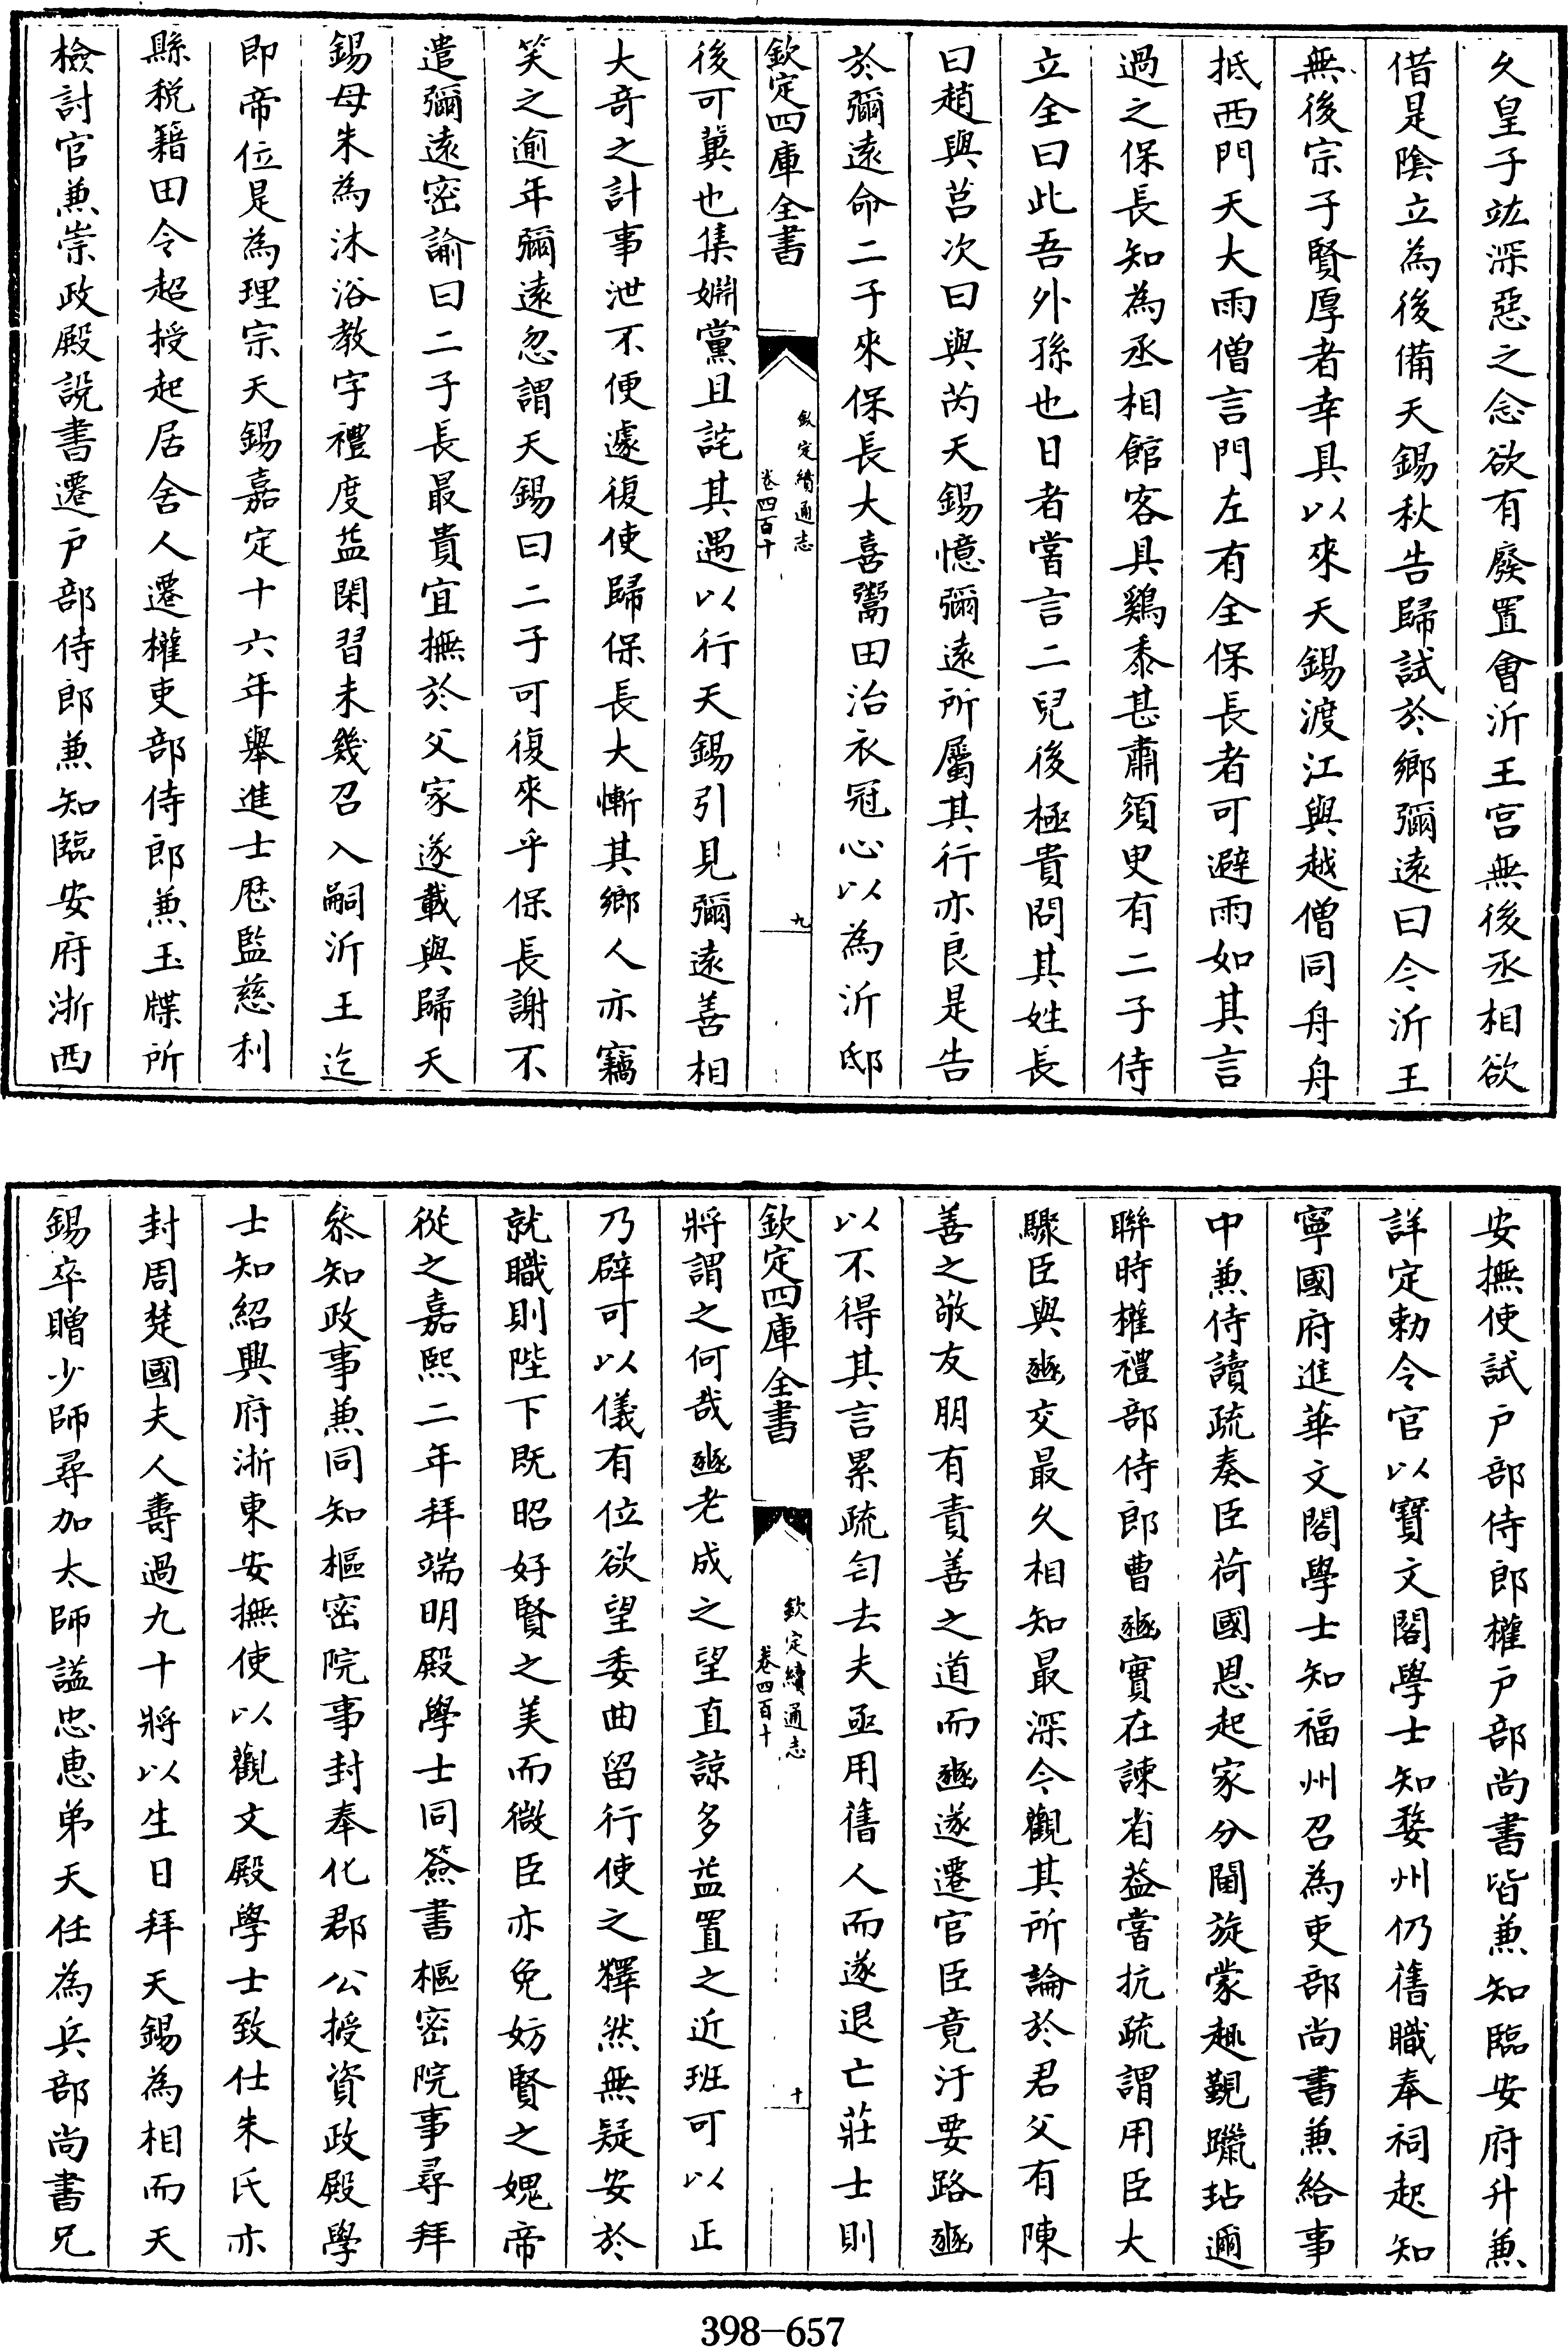 久皇子竑深惡之念欲有廢置會沂王宮無後丞相欲
借是陰立為後備天錫秋告歸試於鄉彌遠曰今沂王
無後宗子賢厚者幸具以來天錫渡江與越僧同舟舟
抵西門天大雨僧言門左有全保長者可避雨如其言
過之保長知為丞相館客具鷄黍甚肅須臾有二子侍
立全曰此吾外孫也日者嘗言二兒後極貴問其姓長
曰趙與莒次曰與芮天錫憶彌遠所屬其行亦良是告
於彌遠命二子來保長大喜鬻田治衣冠心以為沂邸
欽定四庫全書
欽定續通志
卷四百十
九
後可冀也集婣黨且詫其遇以行天錫引見彌遠善相
大奇之計事泄不便遽復使歸保長大慚其鄉人亦竊
笑之逾年彌遠忽謂天錫曰二子可復來乎保長謝不
遣彌遠密諭曰二子長最貴宜撫於父家遂載與歸天
錫母朱為沐浴教字禮度益閑習未幾召入嗣沂王迄
即帝位是為理宗天錫嘉定十六年舉進士歷監慈利
縣稅籍田令超授起居舍人遷權吏部侍郎兼玉牒所
檢討官兼崇政殿說書遷戶部侍郎兼知臨安府浙西
安撫使試戶部侍郎權戶部尚書皆兼知臨安府升兼
詳定勅令官以寶文閣學士知婺州仍舊職奉祠起知
寧國府進華文閣學士知福州召為吏部尚書兼給事
中兼侍讀疏奏臣荷國恩起家分閫旋蒙趣覲躐玷邇
聯時權禮部侍郎曹豳實在諫省葢嘗抗疏謂用臣大
驟臣與豳交最久相知最深今觀其所論於君父有陳
善之敬友朋有責善之道而豳遂遷官臣竟汙要路豳
以不得其言累疏匄去夫亟用舊人而遂退亡莊士則
欽定四庫全書
欽定續通志
卷四百十
十
將謂之何哉豳老成之望直諒多益置之近班可以正
乃辟可以儀有位欲望委曲留行使之釋然無疑安於
就職則陛下既昭好賢之美而微臣亦免妨賢之媿帝
從之嘉熙二年拜端明殿學士同簽書樞密院事尋拜
參知政事兼同知樞密院事封奉化郡公授資政殿學
士知紹興府浙東安撫使以觀文殿學士致仕朱氏亦
封周楚國夫人壽過九十將以生日拜天錫為相而天
錫卒贈少師尋加太師諡忠惠弟天任為兵部尚書兄
398—657